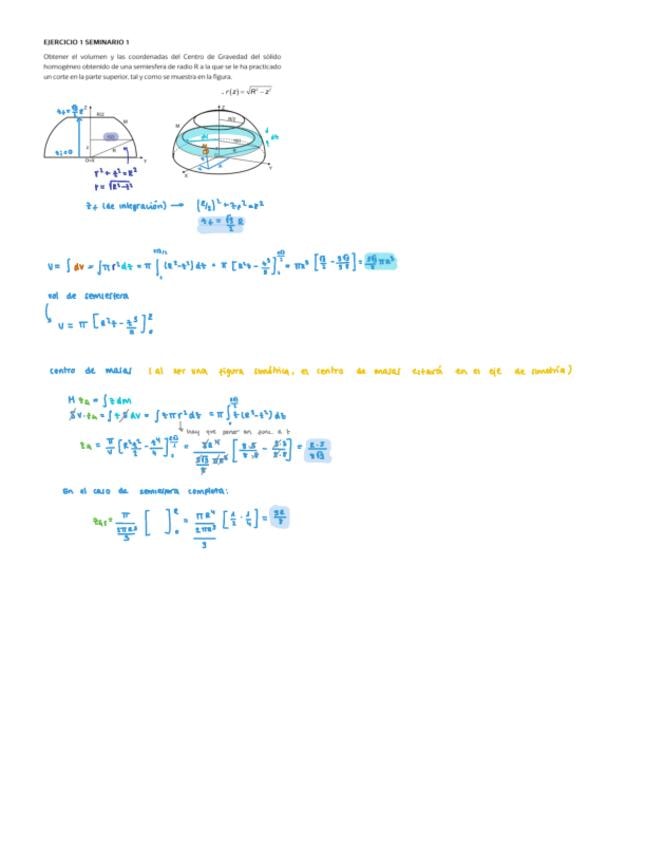 EJERCICIO 1 SEMINARIO 1
Obtener el volumen y las coordenadas del Centro de Gravedad del sólido
homogéneo obtenido de una semiesfera de radio R a la que se le ha practicado
un corte en la parte superior, tal y como se muestra en la figura.
r(z) = √R² − z²
R/2
M
R
r² + z² = R²
r = √R²−z²
zf (de integración) → (R/2)² + zf² = R²
zf = √3/2 R
V = ∫ dV = ∫ π r² dz = π ∫ (R²−z²) dz = π [R²z − z³/3] = πR³ [√3/2 − 3√3/3·8] = 3√3/8 πR³
vol de semiesfera
V = π [R²z − z³/3]
centro de masas (al ser una figura simétrica, el centro de masas estará en el eje de simetría)
M zG = ∫ z dm
V · zG = ∫ z dV = ∫ z π r² dz = π ∫ z (R²−z²) dz
hay que poner en func a z
En el caso de semiesfera completa:
= 3R/8